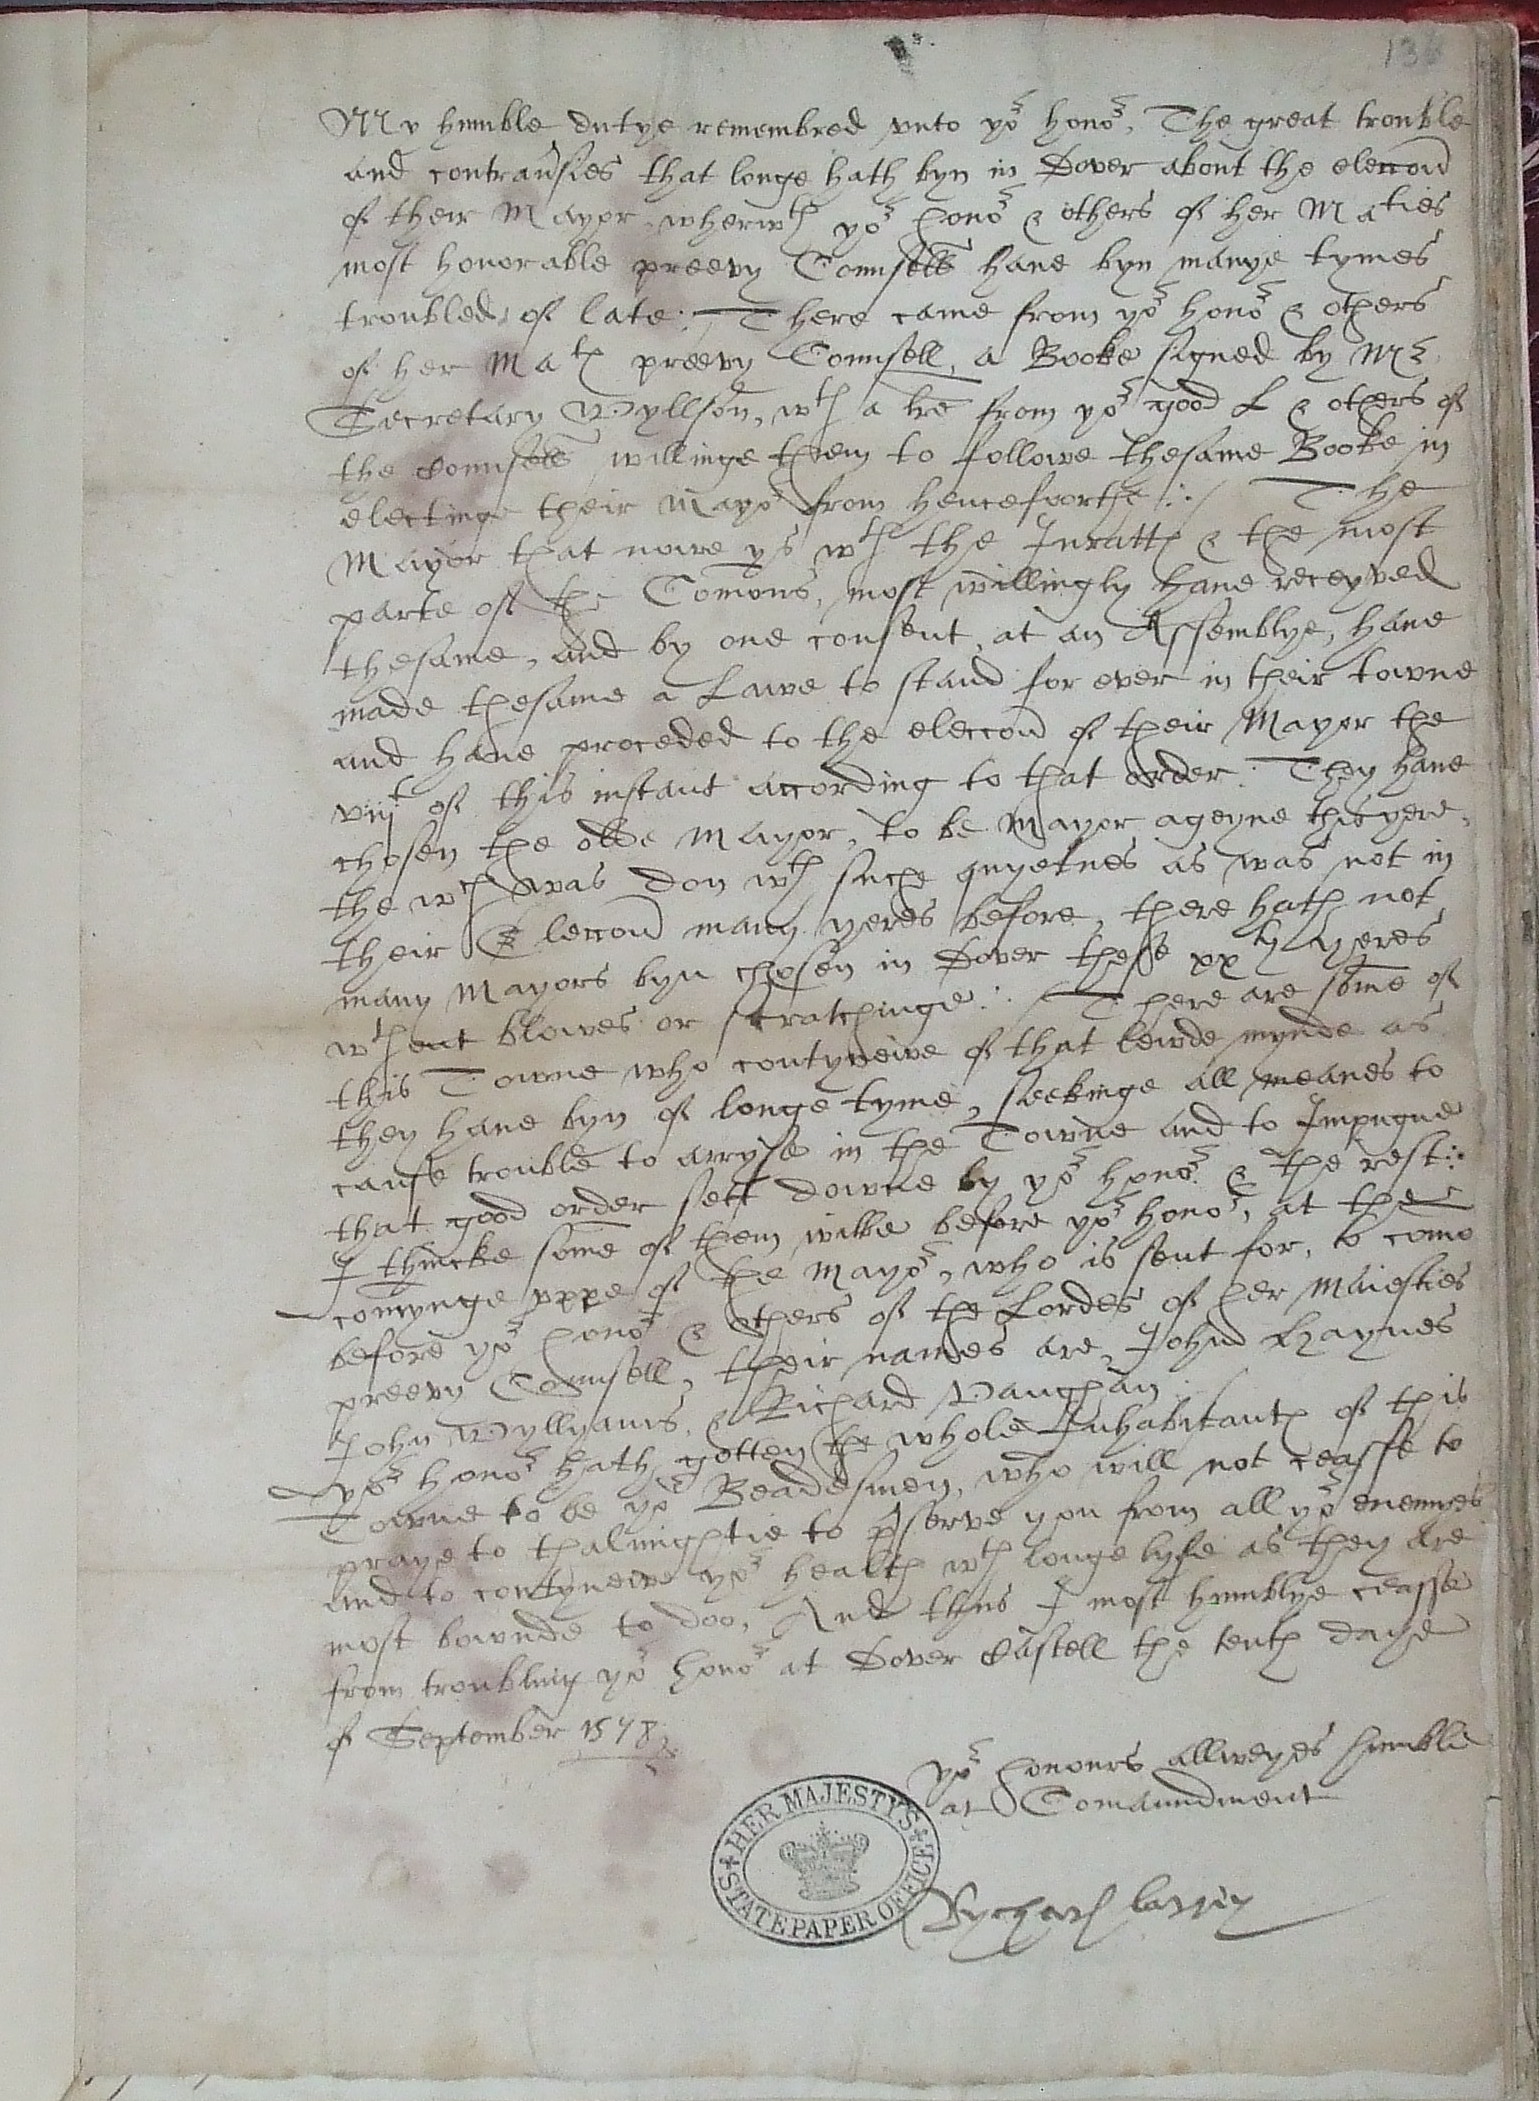 136
My humble dutye remembred vnto yor honor, The great trouble
and contrausies that longe hath byn in Dover about the eleccon
of their Mayor, wherwth yor honor & others of her Maties
most honorable preevy Counsell have byn manye tymes
troubled of late: There came from yor honor & others
of her Mats preevy Counsell, a Booke signed by Mr
Secretary Wyllson, wth a lre from yor good L & others of
the Counsell willinge them to followe thesame Booke in
electinge their Mayor from hencefoorthe :/ The
Mayor that nowe ys wth the Juratts & the most
parte of the Comons, most willingly have receyved
thesame, and by one consent, at an Assemblye, have
made thesame a Lawe to stand for ever in their towne
and have proceded to the eleccon of their Mayor the
viijt of this instant according to that order: They have
chosen the olde Mayor, to be Mayor ageyne this yere,
the wch was don wth suche quyetnes as was not in
their Eleccon many yeres before, there hath not
many Mayors byn chosen in Dover these xxty yeres
wthout blowes or scratchinge :/ There are some of
this Towne who contynewe of that lewde mynde as
they have byn of longe tyme, seekinge all meanes to
cause trouble to arryse in the Towne and to Impugne
that good order sett downe by yor honor & the rest :
I thincke some of them wilbe before yor honor, at the
comynge vppe of the Mayor, who is sent for, to come
before yor honor & others of the Lordes of her Maiesties
preevy Counsell, their names are, John Haynes
John Wyllyams, & Richard Vaughan :/
yor honor hath gotten the whole Inhabitants of this
Towne to be yor Beadesmen, who will not ceasse to
praye to thalmightie to pserve you from all yor enemyes
and to contynewe yor health wth longe lyfe as they are
most bownde to doo, And thus I most humblye ceasse
from troubling yor honor at Dover Castell the tenth daye
of September 1578
yor honours allweyes humble
at Comaundment
Rychard barrey
HER MAJESTY'S STATE PAPER OFFICE